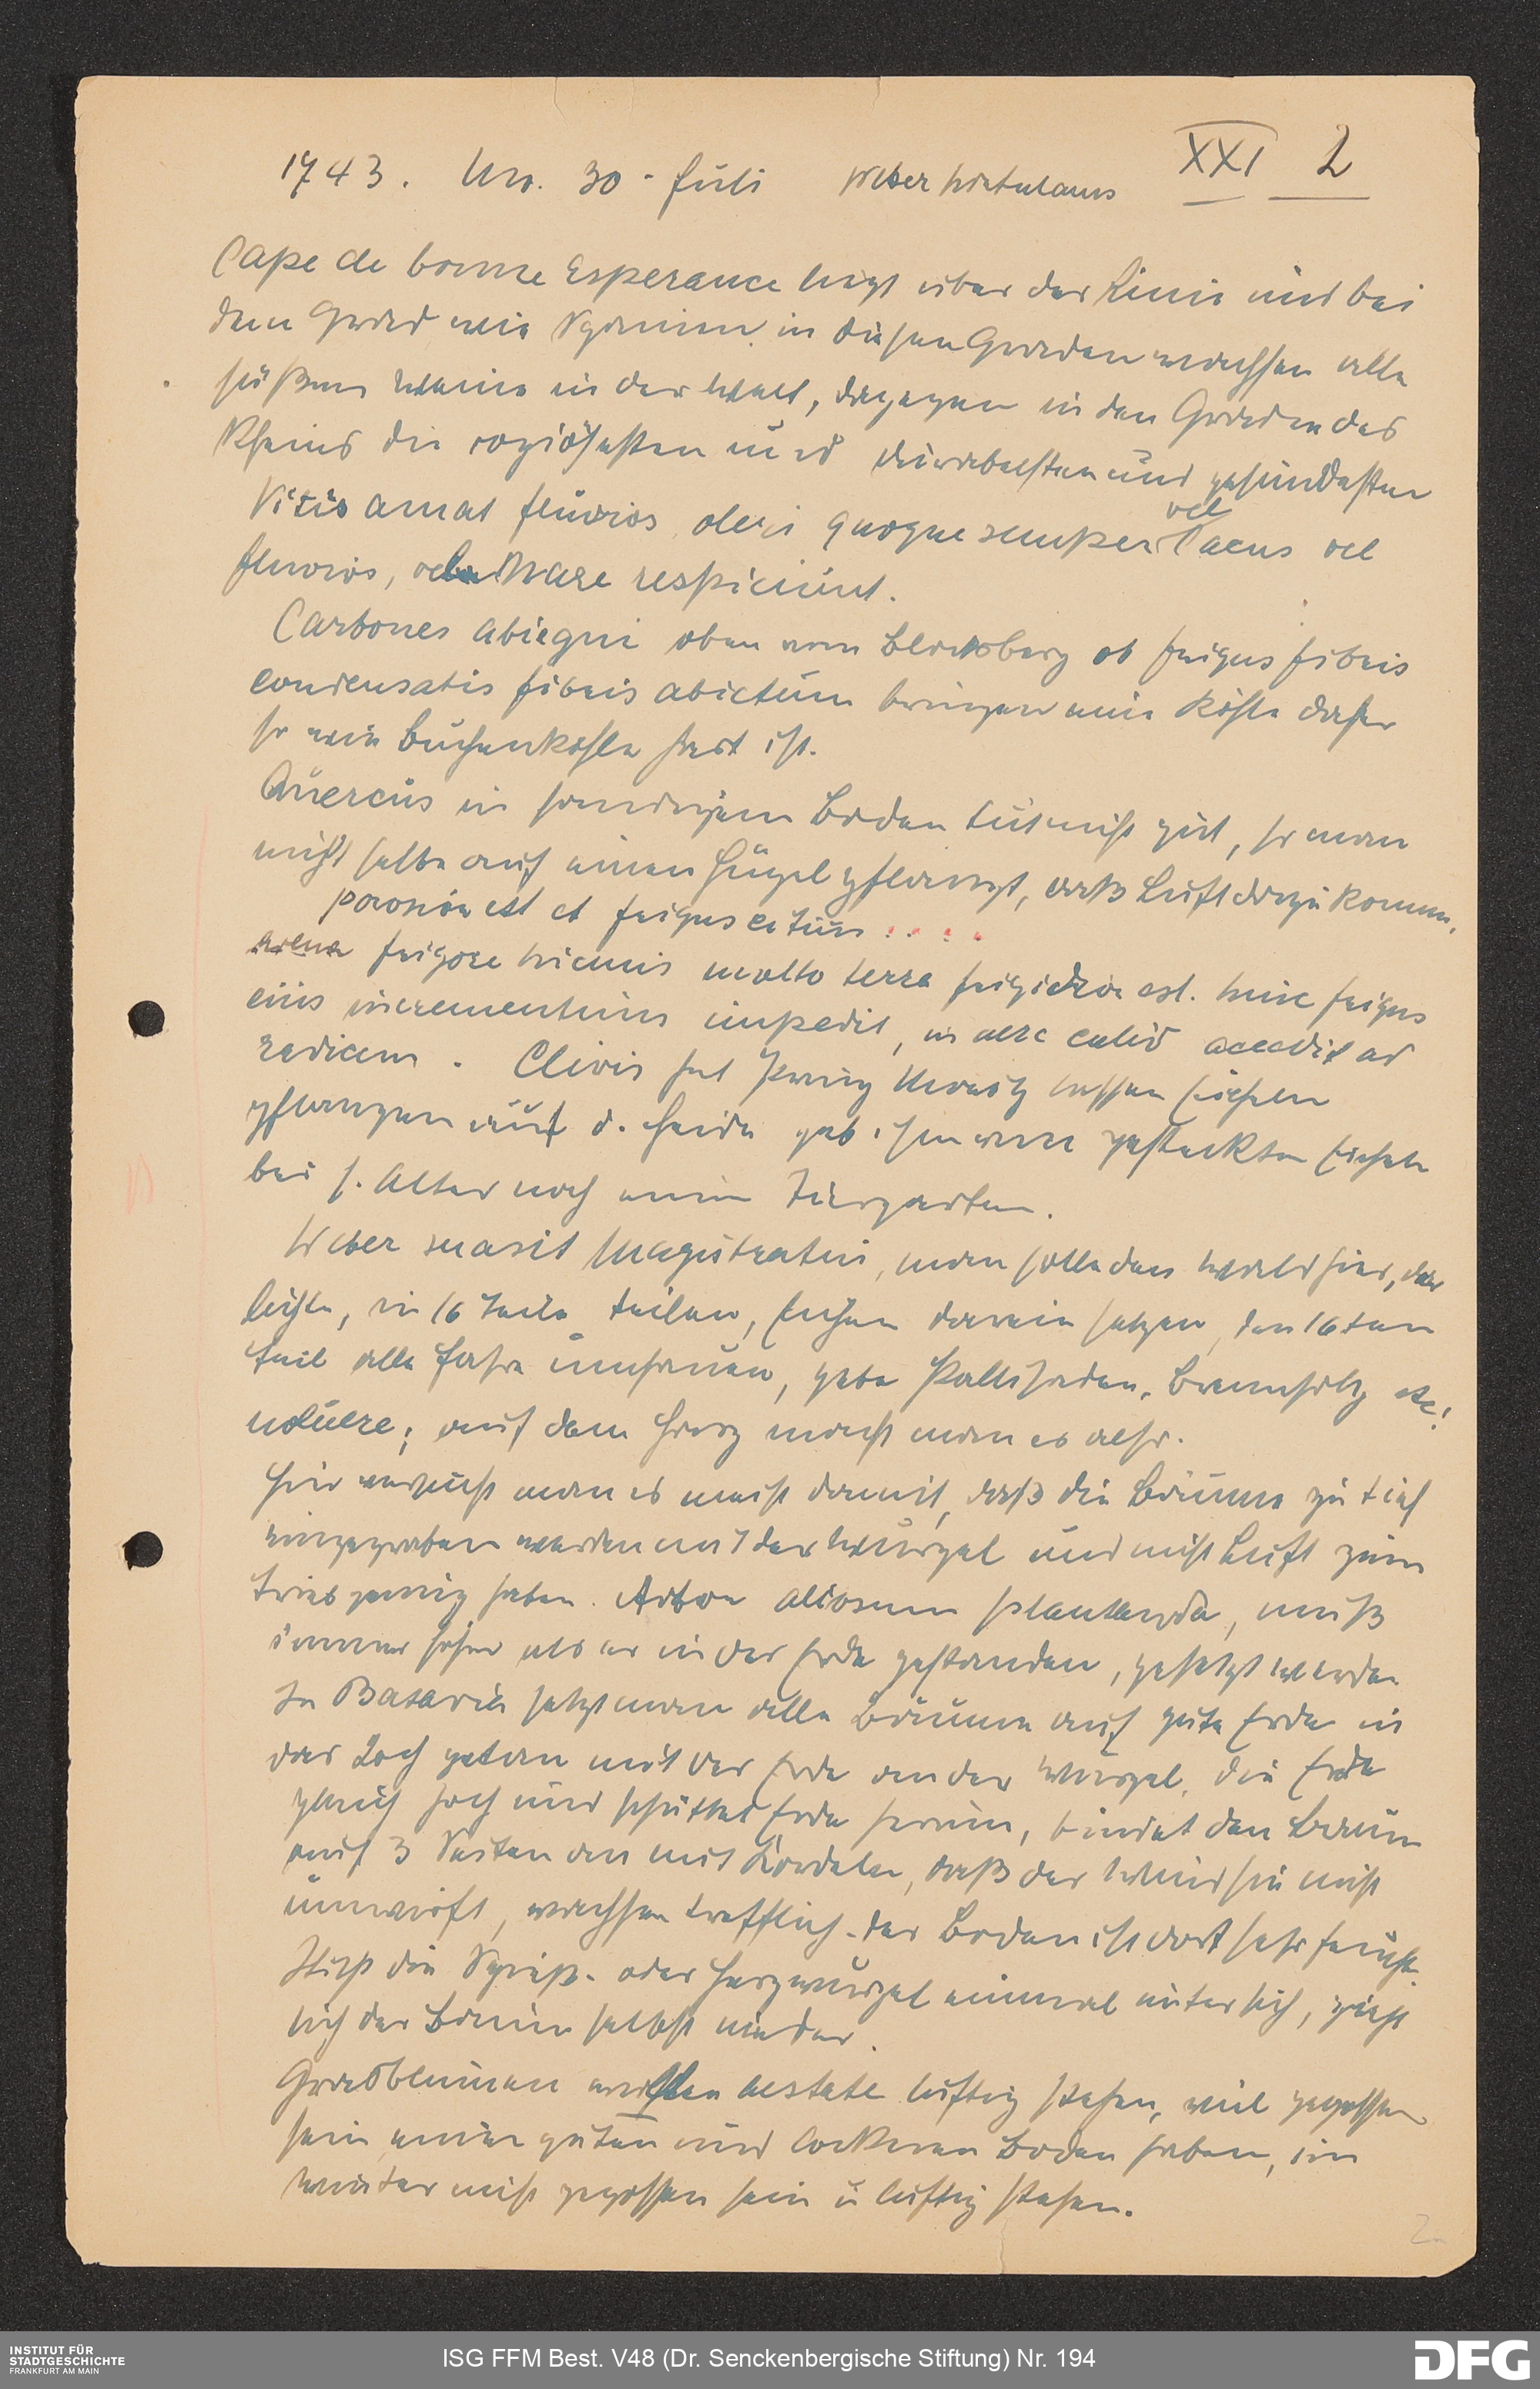 1743. Mo. 30. Juli Weber hortulanus XXI 2
Cape de bonne Esperance liegt über der Linie und bei
dem Grad wie Spanien, in diesen Graden wachsen alle
süßen Weine in der Welt, dagegen in den Graden des
Rheins die copiösesten und durabelsten und gesündesten
Vitis amat fluvios, olea quoque semper vel lacus vel
fluvios, vel Mare respiciunt.
Carbones abiegni oben vom Blocksberg ob frigus fibris
condensatis fibris abietum bringen eine Kohle daher
so wie Buchenkohle hart ist.
Quercus in sandigem Boden tut nicht gut, so man
nicht selbe auf einen Hügel pflanzt, daß Luft dazu komm.
porosior est et frigus citius . . . .
arena frigore hiemis multo terra frigidior est. hinc frigus
eius incrementum impedit, in aere calid accedit ad
radicem. Clivis hat Prinz Moritz lassen Eicheln
pflanzen auf d. Heide gab ihm von gesteckten Eicheln
bei s. Alter noch einen Tiergarten.
Weber suasit Magistratui, man solle den Wald hier, der
licht, in 16 Teile teilen, Eichen darein setzen, den 16ten
Teil alle Jahr umhauen, gebe Pallisaden, Brennholz etc.
noluere; auf dem Harz macht man es also.
Hier versucht man es meist damit, daß die Bäume zu tief
eingegraben werden mit der Wurzel und nicht Luft zum
Trieb genug haben. Arbor aliorsum plantanda, muß
immer höher als er in der Erde gestanden, gesetzt werden
In Batavia setzt man alle Bäume auf gute Erde in
das Loch getan mit der Erde an der Wurzel, die Erde
gleich hoch und schüttet Erde herum, bindet den Baum
auf 3 Seiten an mit Kordeln, daß der Wind sie nicht
umwirft, wachsen trefflich. der Boden ist dort sehr feucht.
Sticht die Spieß- oder Herzwurzel einmal unter sich, zieht
sich der Baum selbst nieder.
Grasblumen wollen aestate luftig stehen, viel gegossen
sein, einen guten und lockeren Boden haben, im
Winter nicht gegossen sein u luftig stehen.
2a
INSTITUT FÜR
STADTGESCHICHTE
FRANKFURT AM MAIN
ISG FFM Best. V48 (Dr. Senckenbergische Stiftung) Nr. 194
DFG